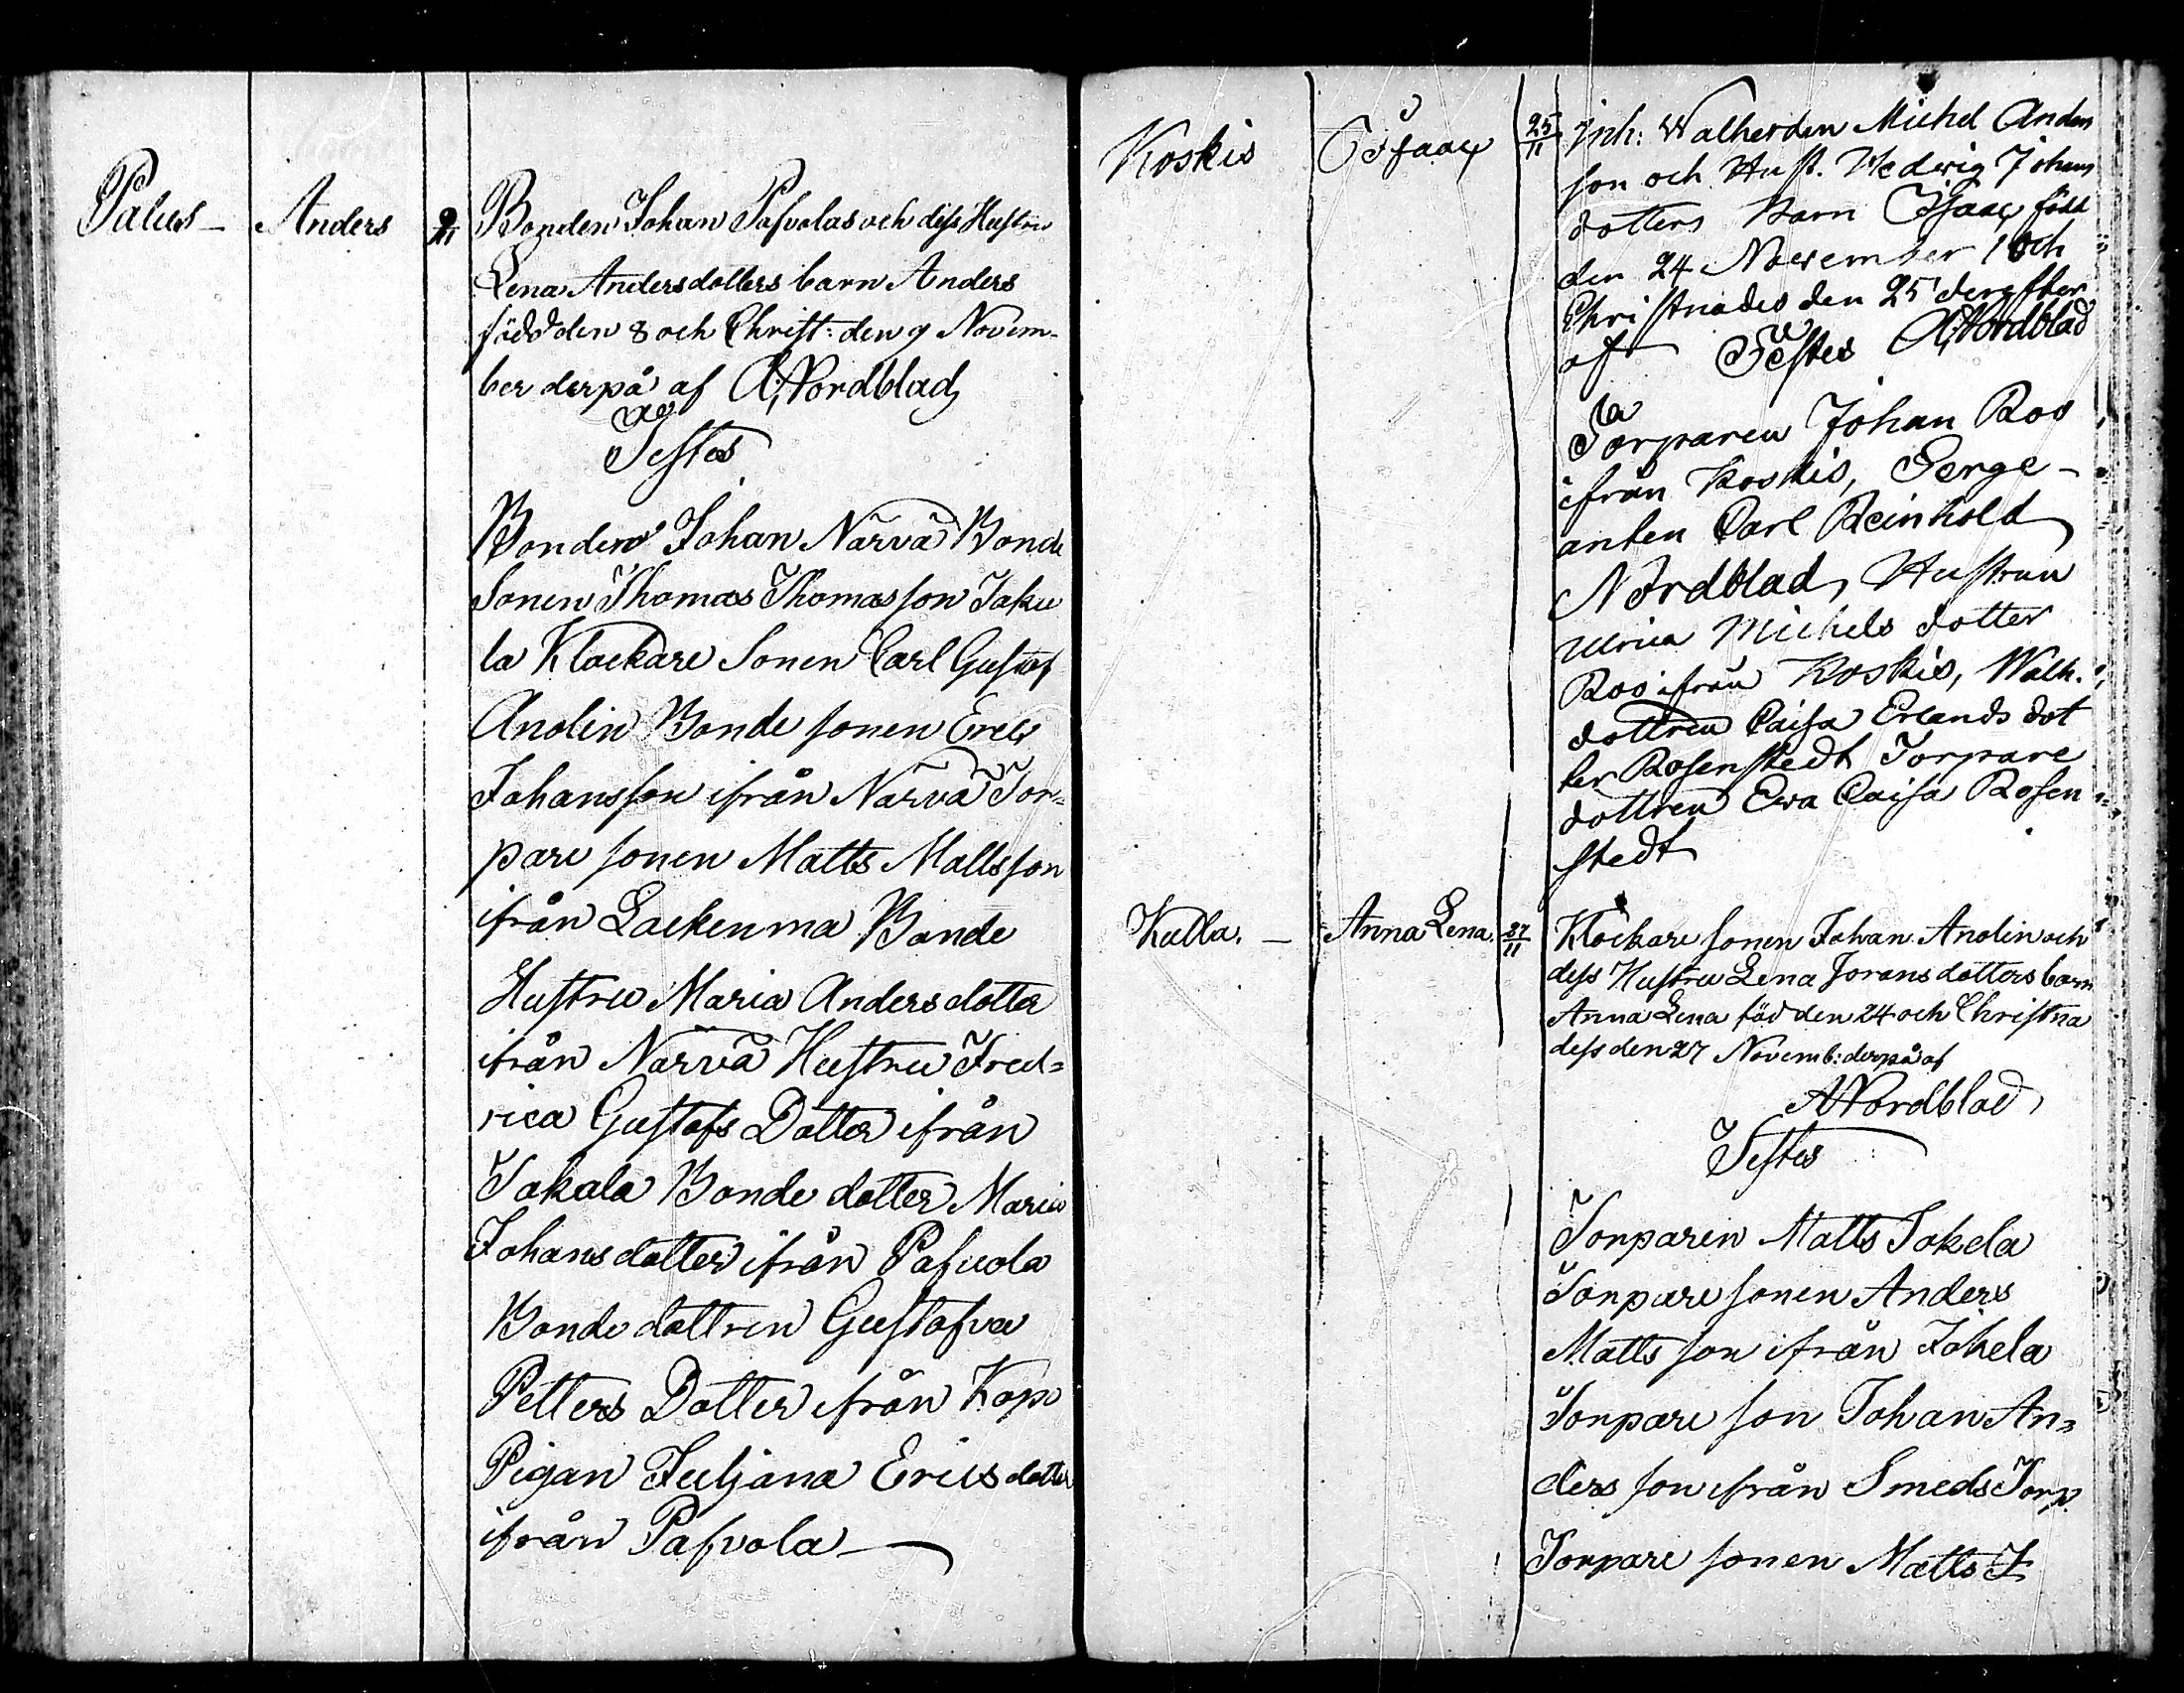 Palus - Anders 9/11 Bonden Johan Pafvolas och dess Hustru
Lena Andersdotters barn Anders
född den 8 och Christ: den 9 Novem-
ber derpå af A, Nordblad
Testes
Bonden Johan Närvä Bonde
Sonen Thomas Thomasson Jaku
la Klockare Sonen Carl Gustaf
Anolin Bonde sonen Eric
Johansson ifrån Närvä Tor=
pare sonen Matts Mattsson
ifrån Laekenma Bonde
Hustru Maria Andersdotter
ifrån Närvä Hustru Fred=
rica Gustafs Dotter ifrån
Jakala Bonde dotter Maria
Johansdotter ifrån Pafvola
Bonde dottren Gustafva
Petters Dotter ifrån Kopo
Pigan Juljana Ericsdotter
ifrån Pafvola
Koskis Isaac 25/11 Inh: Walherden Michel Anders
son och Hust. Hedvig Johans
dotters Barn Isaac född
den 24 November och
Christnades den 25 derefter
af A, Nordblad
Testes
Torparen Johan Roo
ifrån Koskis, Serge-
anten Carl Reinhold
Nordblad, Hustrun
Ulrica Michels dotter
Roo ifrån Koskis, Walh.
dottren Caisa Erlands dot
ter Rosenstedt Torpare
dottren Ewa Caisa Rosen
stedt
Kulla. - Anna Lena. 27/11 Klockare sonen Johan Anolin och
dess Hustru Lena Joransdotters barn
Anna Lena föd den 24 och Christna
dess den 27 Novemb: derpå af
A Nordblad
Testes
Torparen Matts Jokela
Torpare sonen Anders
Matts son ifrån Jokela
Torpare son Johan An=
ders son ifrån Smeds Torp
Torpare sonen Matts J